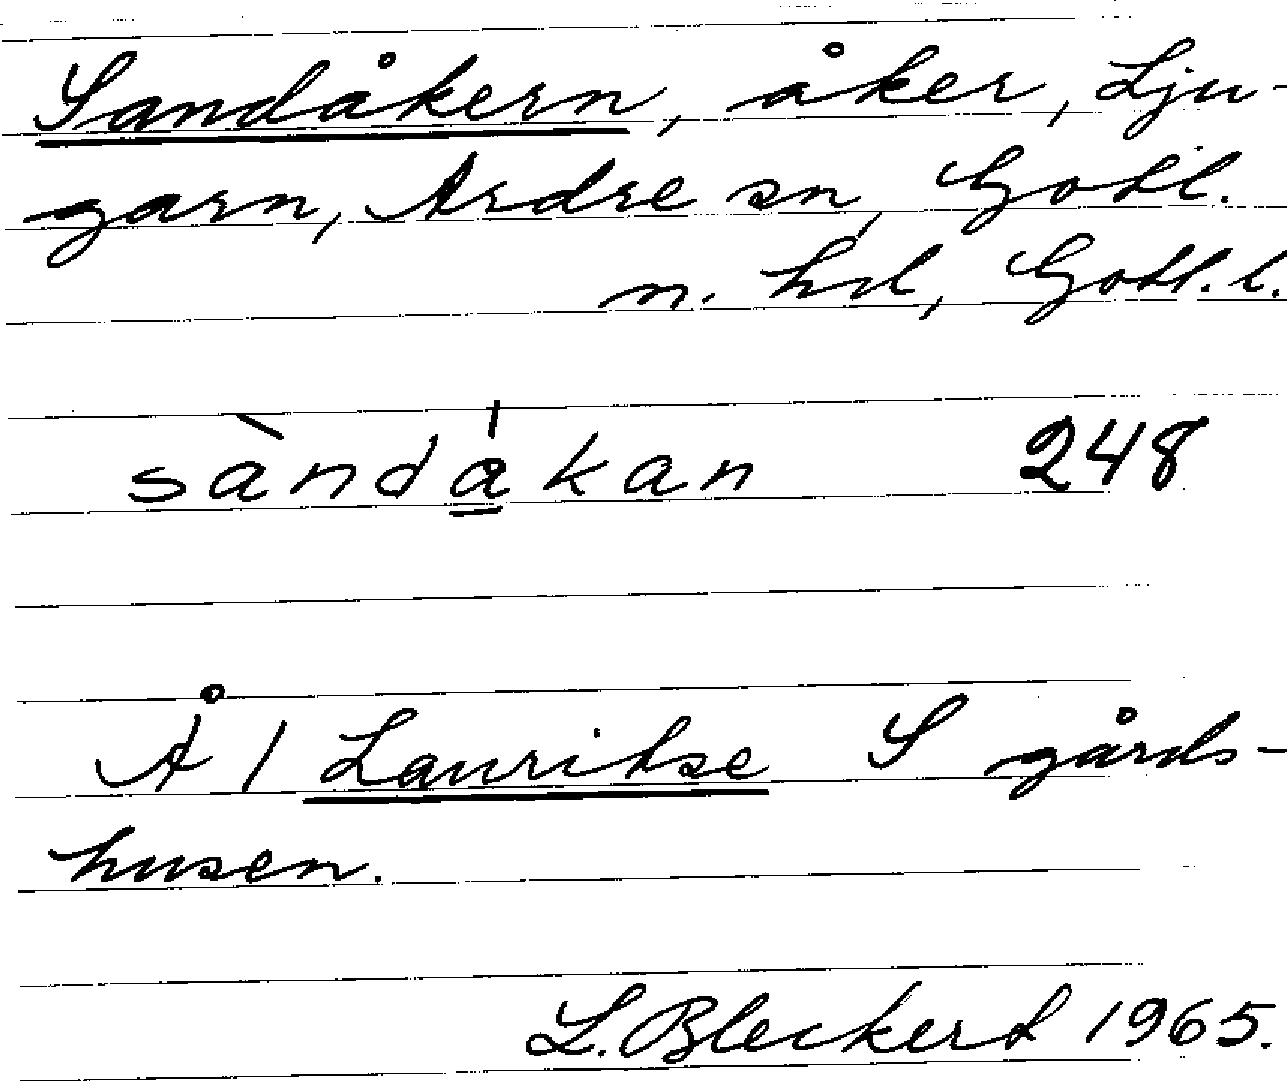 Sandåkern, åker, Lju-
garn, Ardre sn, Gotl.
n. hd, Gotl. l.
sànda̲̍kan 248
Å / Lauritse S gårds-
husen.
L. Bleckert 1965.